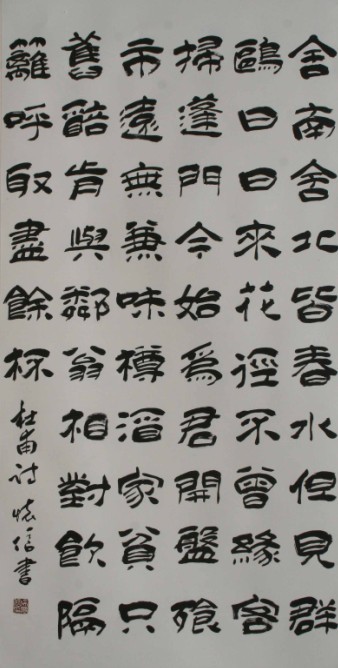 舍南舍北皆春水但見群
鷗日日來花徑不曾緣客
掃蓬門今始爲君開盤飧
市遠無兼味樽酒家貧只
舊醅肯與鄰翁相對飲隔
籬呼取盡餘杯
杜甫詩 懷信書